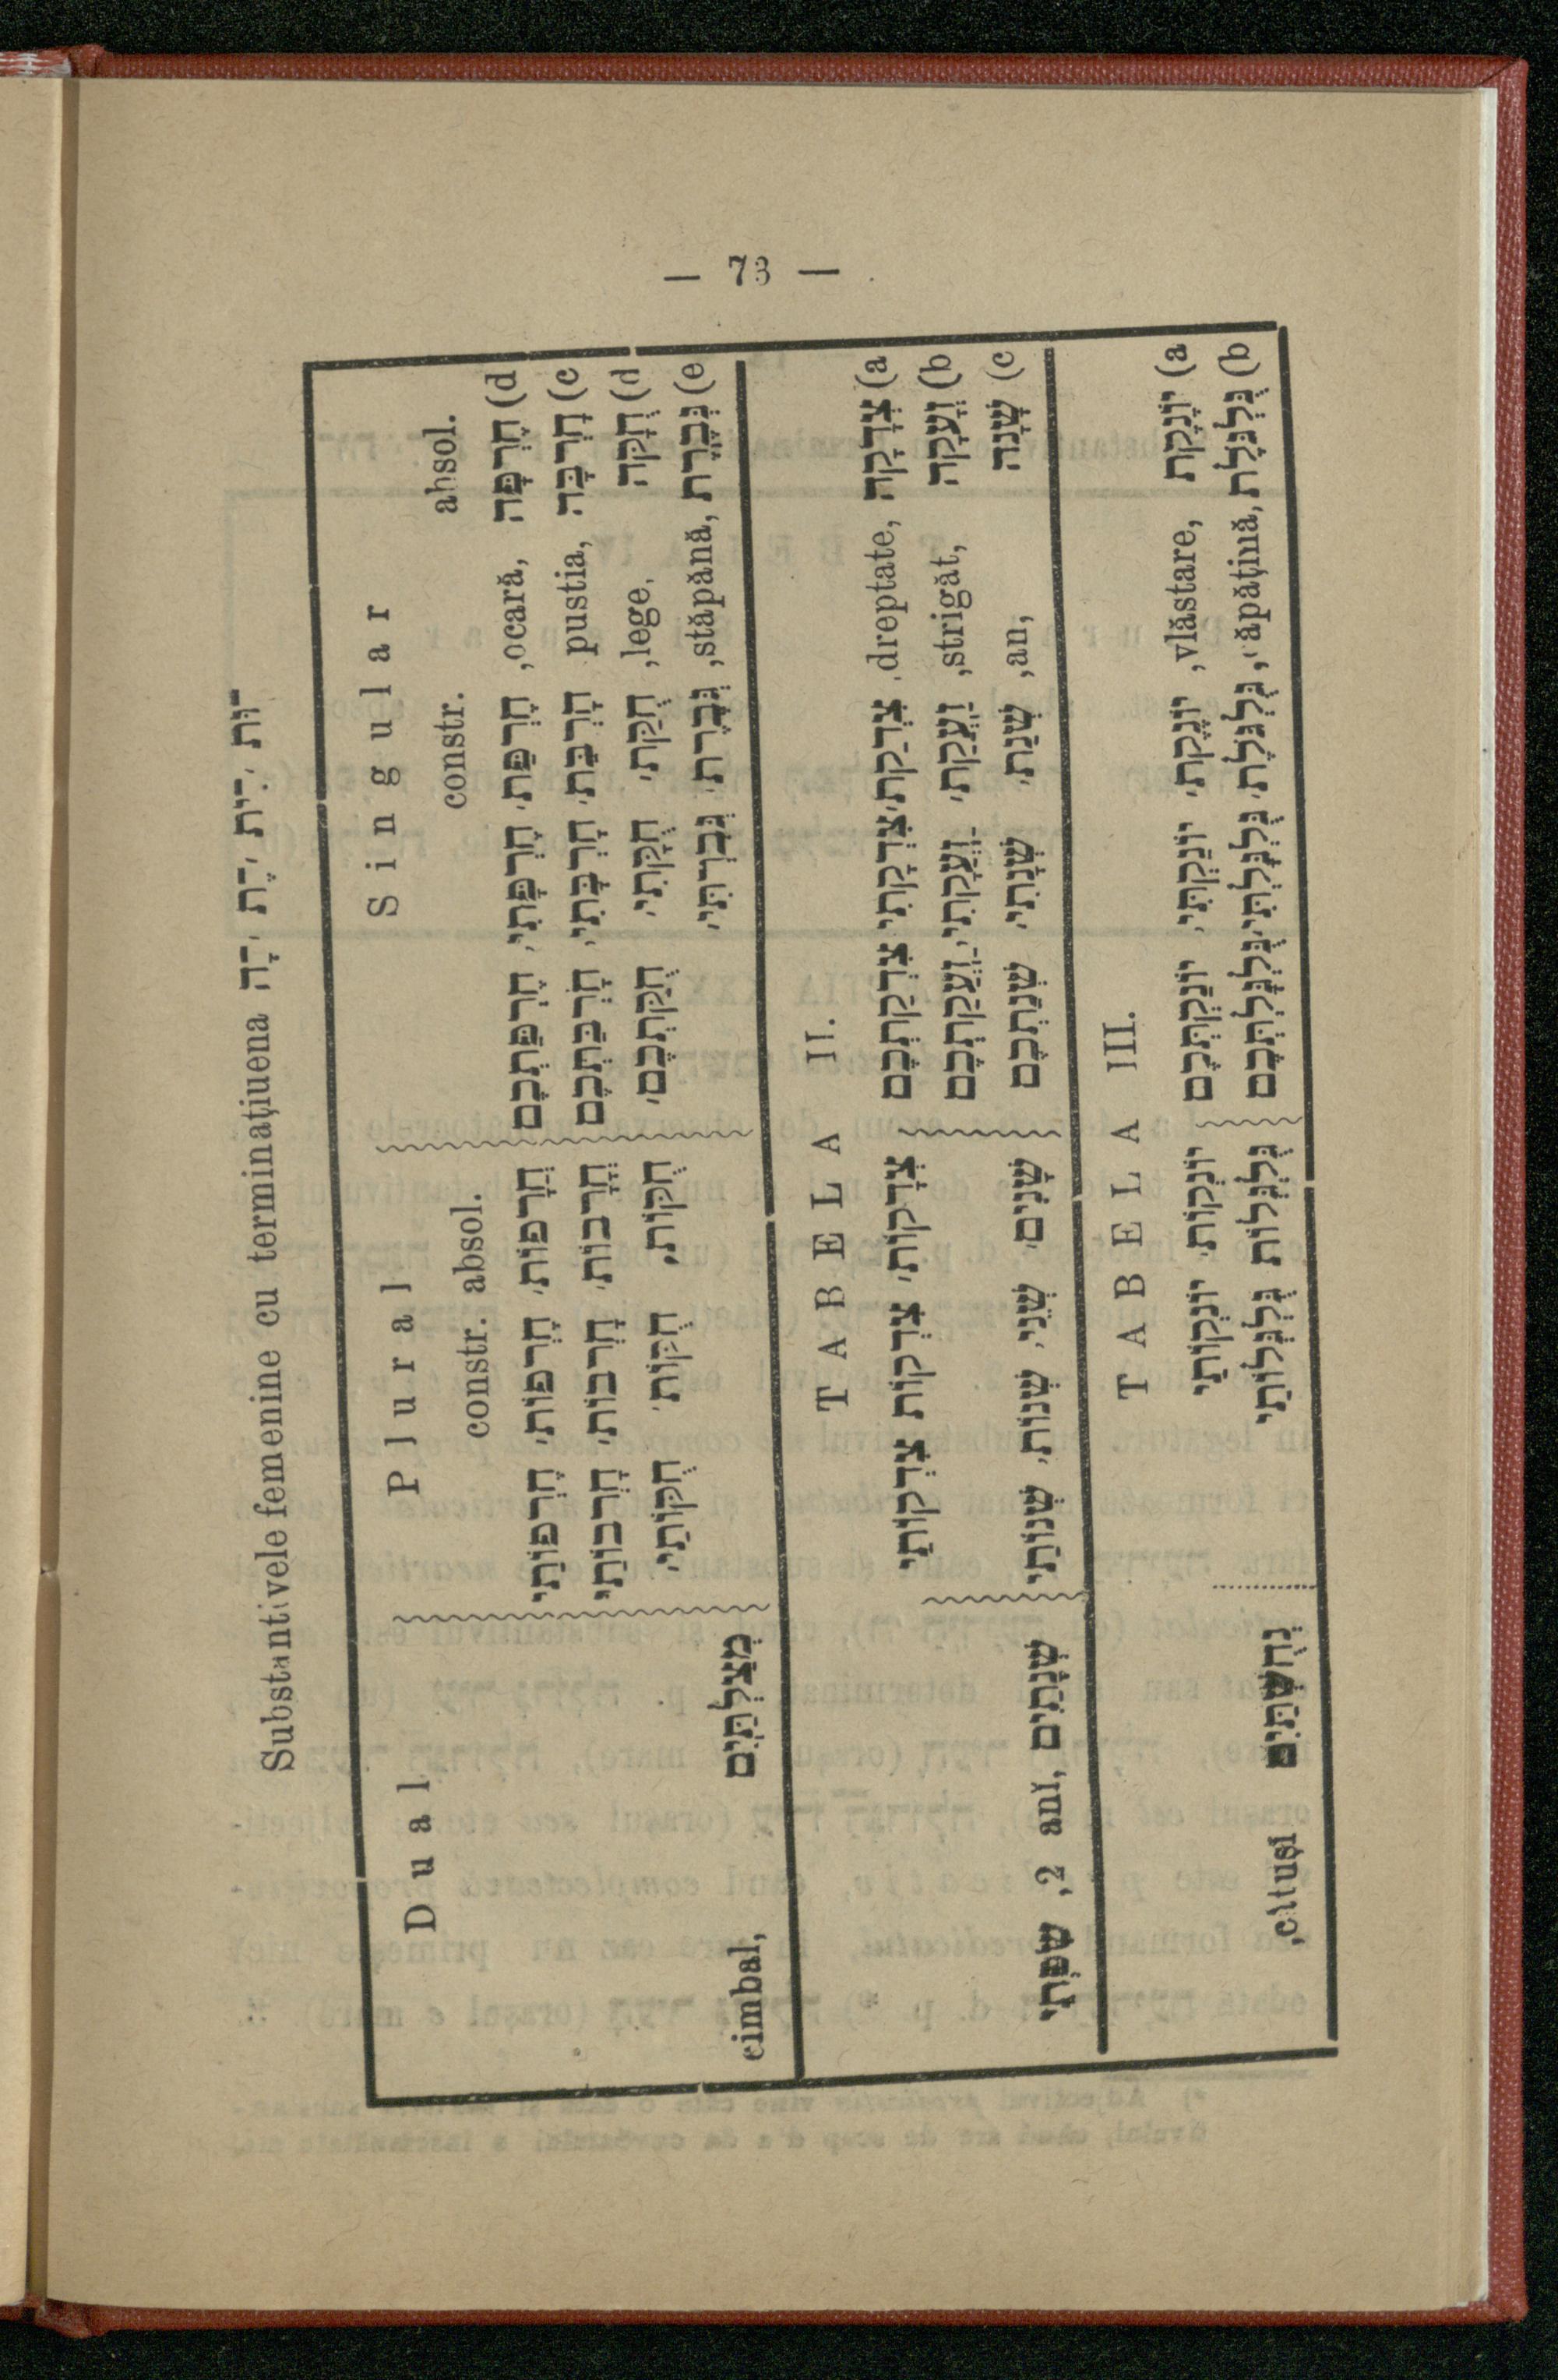 — 73 —
Substantivele femenine cu terminațiuena ־ָה ,־ֶת ,־ִית ,־וּת
Dual Plural Singular
constr. absol. constr. absol.
חֶרְפּוֹתַי חֶרְפּוֹת, חֲרָפוֹת, חֶרְפַּתְכֶם חֶרְפָּתִי, חֶרְפַּת, ,ocară, חֶרְפָּה (d
חָרְבוֹתַי חָרְבוֹת, חֳרָבוֹת, חָרְבַּתְכֶם חָרְבָּתִי, חָרְבַּת, pustia, חָרְבָּה (c
חֻקּוֹתַי, חֻקּוֹת, חֻקּוֹת, חֻקַּתְכֶם, חֻקָּתִי, חֻקַּת, ,lege, חֻקָּה (d
cimbal, מְצִלְתַּיִם גְּבִרְתִּי, גְּבֶרֶת, ,stăpână, גְּבֶרֶת (e
TABELA II.
צִדְקוֹתַי צִדְקוֹת צְדָקוֹת, צִדְקַתְכֶם צִדְקָתִי צִדְקַת, ,dreptate, צְדָקָה (a
זַעֲקַתְכֶם זַעֲקָתִי, זַעֲקַת, ,strigăt, זְעָקָה (b
,2 anĭ, שְׁנָתַיִם שְׁנוֹתַי שְׁנוֹת, שְׁנֵי, שָׁנִים, שְׁנַתְכֶם שְׁנָתִי, שְׁנַת, ,an, שָׁנָה (c
TABELA III.
יוֹנְקוֹתַי יוֹנְקוֹת, יוֹנַקְתְּכֶם יוֹנַקְתִּי, יוֹנֶקֶת, ,vlăstare, יוֹנֶקֶת (a
,cătușĭ נְחֻשְׁתַּיִם גֻּלְגְּלוֹתַי גֻּלְגְּלוֹת גֻּלְגָּלְתְּכֶם גֻּלְגָּלְתִּי, גֻּלְגֹּלֶת, גֻּלְגֹּלֶת (b